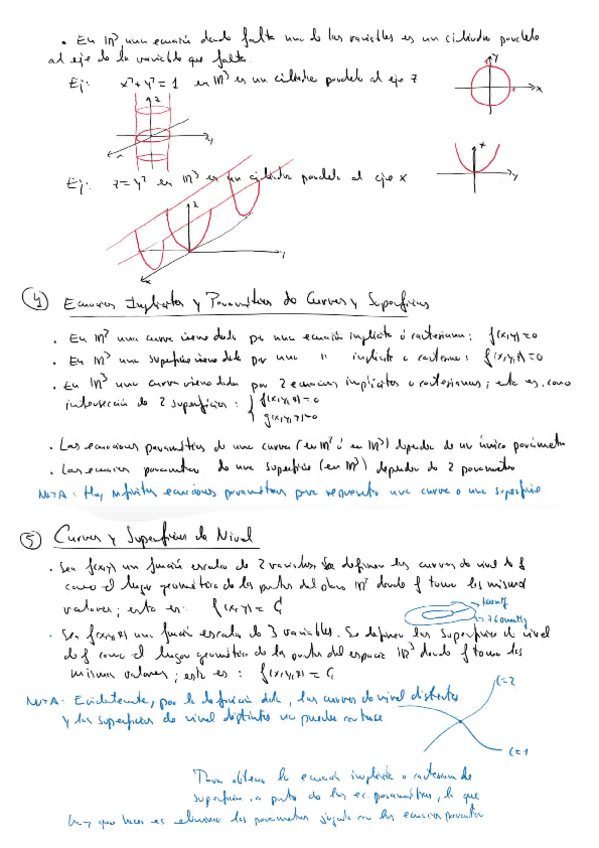 • En ℝ³ una ecuación donde falta una de las variables es un cilindro paralelo
al eje de la variable que falta.
Ej: x²+y²=1 en ℝ³ es un cilindro paralelo al eje z
y
x
z
y
x
Ej: z=y² en ℝ³ es un cilindro paralelo al eje x
y
z
y
x
④ Ecuaciones Implícitas y Paramétricas de Curvas y Superficies
• En ℝ² una curva viene dada por una ecuación implícita ó cartesiana: f(x,y)=0
• En ℝ³ una superficie viene dada por una " implícita o cartesiana: f(x,y,z)=0
• En ℝ³ una curva viene dada por 2 ecuaciones implícitas o cartesianas; esto es, como
intersección de 2 superficies: { f(x,y,z)=0
g(x,y,z)=0
• Las ecuaciones paramétricas de una curva (en ℝ² ó en ℝ³) dependen de un único parámetro
• Las ecuaciones paramétricas de una superficie (en ℝ³) dependen de 2 parámetros
NOTA: Hay infinitas ecuaciones paramétricas para representar una curva o una superficie
⑤ Curvas y Superficies de Nivel
• Sea f(x,y) un función escalar de 2 variables. Se definen las curvas de nivel de f
como el lugar geométrico de los puntos del plano ℝ² donde f toma los mismos
valores; esto es: f(x,y) = C
• Sea f(x,y,z) una función escalar de 3 variables. Se definen las superficies de nivel
de f como el lugar geométrico de los puntos del espacio ℝ³ donde f toma los
mismos valores; esto es: f(x,y,z) = C
NOTA: Evidentemente, por la definición dada, las curvas de nivel distintas
y las superficies de nivel distintas no pueden cortarse
C=2
C=1
Para obtener la ecuación implícita o cartesiana de
superficie, a partir de las ec. paramétricas, lo que
hay que hacer es eliminar los parámetros jugando con las ecuaciones paramétricas